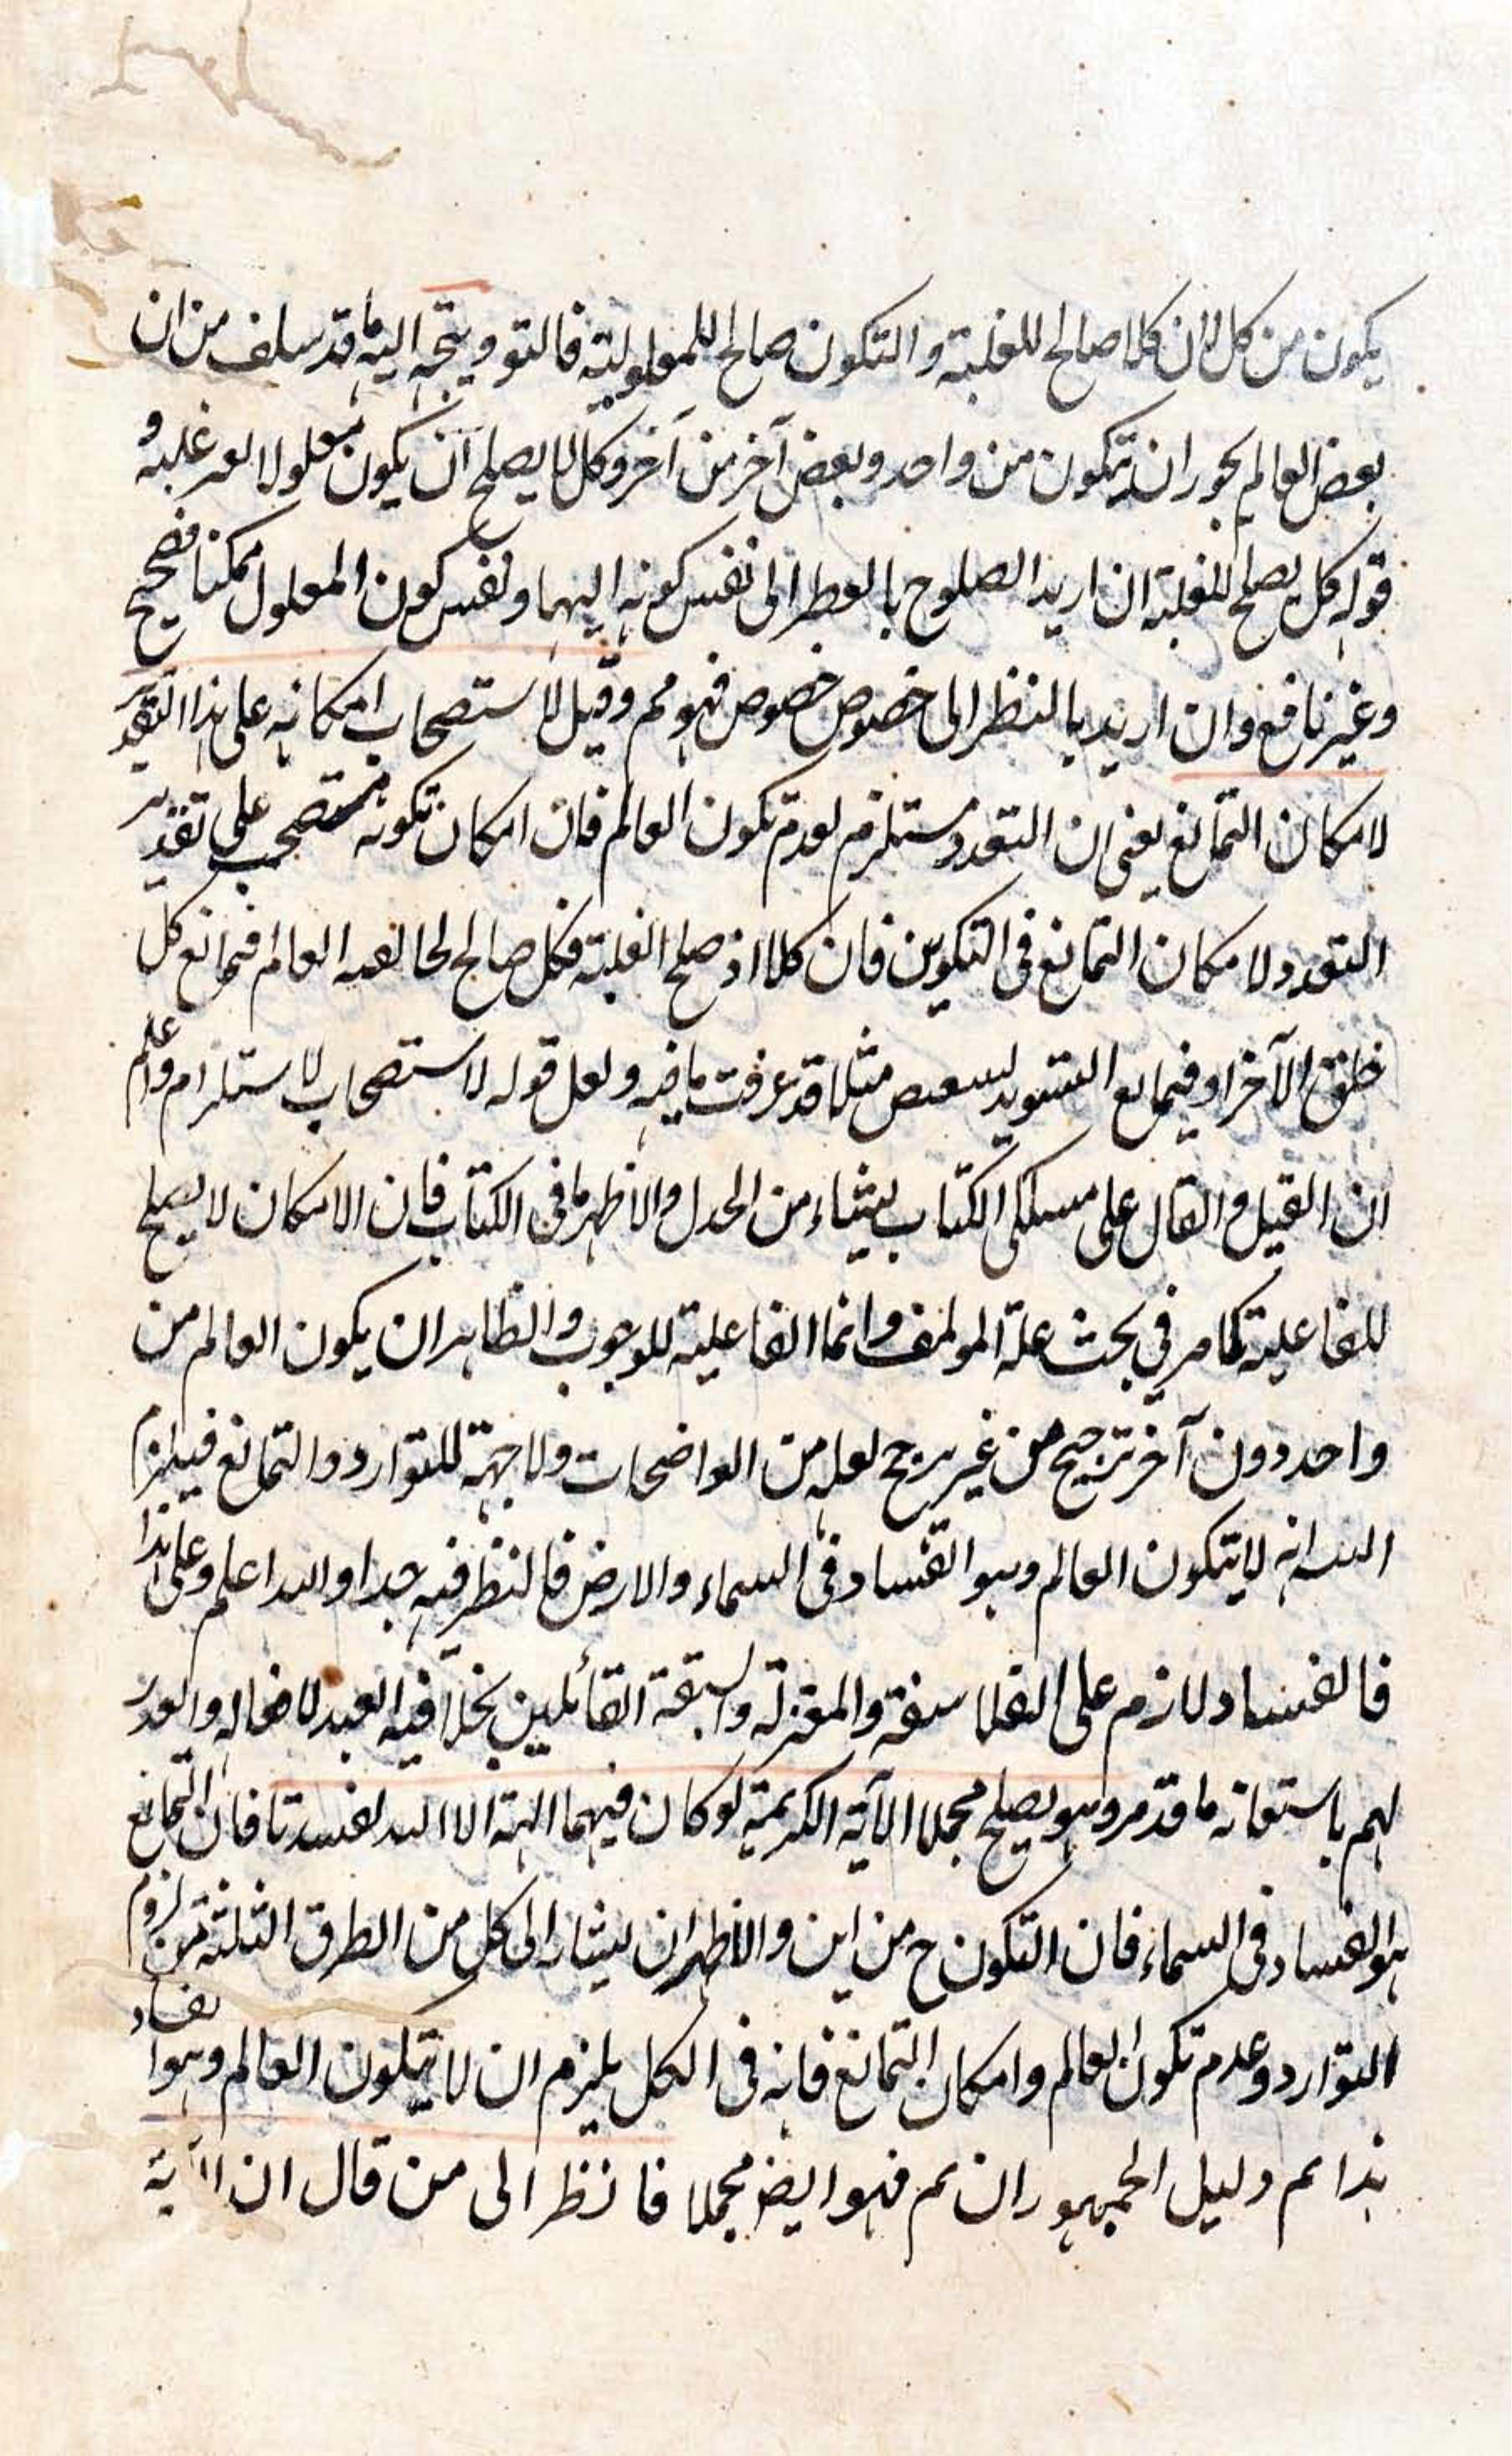 يكون من كل لان كلا صالح للعلية والتكون صالح للمعلولية فالتو ويتجه اليه ما قد سلف من ان
بعض العالم يجوز ان يتكون من واحد وبعض آخر من آخر وكل لا يصلح ان يكون معلولا لعد علية و
قوله كل يصلح للعلية ان اريد الصلوح بالنظر الى نفس كونه الهما ونفس كون المعلول ممكنا فصحيح
وغير نافع وان اريد بالنظر الى خصوص خصوص فهو مم وقيل لا استصحاب امكانه على هذا التقدير
لامكان التمانع يعنى ان التعدد مستلزم لعدم تكون العالم فان امكان تكونه مستصحب على تقدير
التعدد ولامكان التمانع فى التكوين فان كلا اذ صلح العلية فكل صالح لخالقية العالم فتمانع كل
خلق الآخر او فيمانع مثلا قد عرفت ما فيه ولعل قوله لا استصحاب لاستلزام واعلم
ان القيل والقال على مسلكى الكتاب ينشاء من الجدل والاظهر ما فى الكتاب فان الامكان لا يصلح
للفاعلية كما مر فى بحث علة المؤلف وانما الفاعلية للوجوب والظاهر ان يكون العالم من
واحد دون آخر ترجيح من غير مرجح لعله من الواضحات ولا جهة للتوارد والتمانع فيلزم
البته انه لا يتكون العالم وهو الفساد فى السماء والارض فالنظر فيه جدا والله اعلم وعلى هذا
فالفساد لازم على الفلاسفة والمعتزلة والشيعة القائلين بخلاقية العبد لافعاله والعذر
لهم باستعانة ما قد مر وهو يصلح مجملا الآية الكريمة لو كان فيهما الهة الا الله لفسدتا فان التمانع
هو الفساد فى السماء فان التكون ح من اين والاظهر ان يشار الى كل من الطرق الثلثة من لزوم
التوارد وعدم تكون العالم وامكان التمانع فانه فى الكل يلزم ان لا يتكون العالم وهو الفساد
هذا ثم دليل الجمهور ان تم فهو ايض مجملا فانظر الى من قال ان الآية